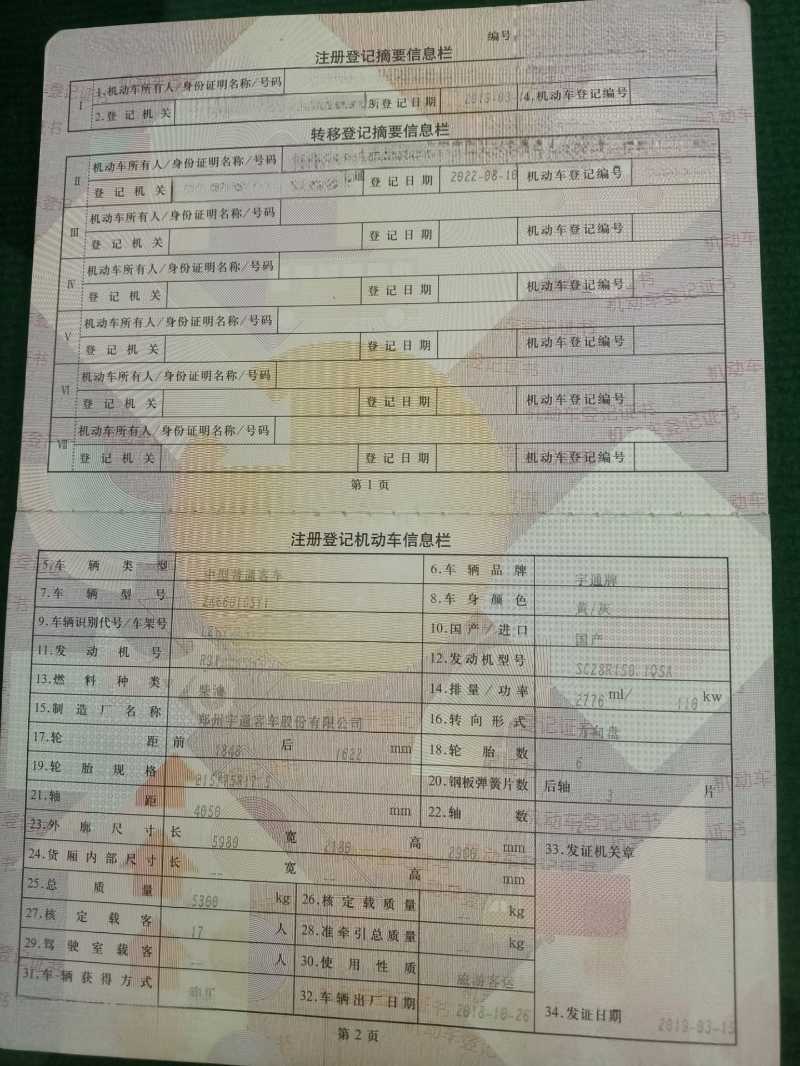 编号
注册登记摘要信息栏
I 1.机动车所有人/身份证明名称/号码
2.登记机关 3.登记日期 2019-03 4.机动车登记编号
转移登记摘要信息栏
II 机动车所有人/身份证明名称/号码
登记机关 登记日期 2022-08-10 机动车登记编号
III 机动车所有人/身份证明名称/号码
登记机关 登记日期 机动车登记编号
IV 机动车所有人/身份证明名称/号码
登记机关 登记日期 机动车登记编号
V 机动车所有人/身份证明名称/号码
登记机关 登记日期 机动车登记编号
VI 机动车所有人/身份证明名称/号码
登记机关 登记日期 机动车登记编号
VII 机动车所有人/身份证明名称/号码
登记机关 登记日期 机动车登记编号
第1页
注册登记机动车信息栏
5.车辆类型 中型普通客车 6.车辆品牌 宇通牌
7.车辆型号 ZK6601D5Y1 8.车身颜色 黄/灰
9.车辆识别代号/车架号 10.国产/进口 国产
11.发动机号 12.发动机型号 SC28R150.1Q5A
13.燃料种类 柴油 14.排量/功率 2776 ml/ 110 kw
15.制造厂名称 郑州宇通客车股份有限公司 16.转向形式 方向盘
17.轮距 前 1840 后 1622 mm 18.轮胎数 6
19.轮胎规格 20.钢板弹簧片数 后轴 3 片
21.轴距 4050 mm 22.轴数 2
23.外廓尺寸 长 5980 宽 2180 高 2900 mm 33.发证机关章
24.货厢内部尺寸 长 -- 宽 -- 高 -- mm
25.总质量 5360 kg 26.核定载质量 -- kg
27.核定载客 17 人 28.准牵引总质量 -- kg
29.驾驶室载客 -- 人 30.使用性质 旅游客运
31.车辆获得方式 购买 32.车辆出厂日期 2018-10-26 34.发证日期 2019-03-15
第2页